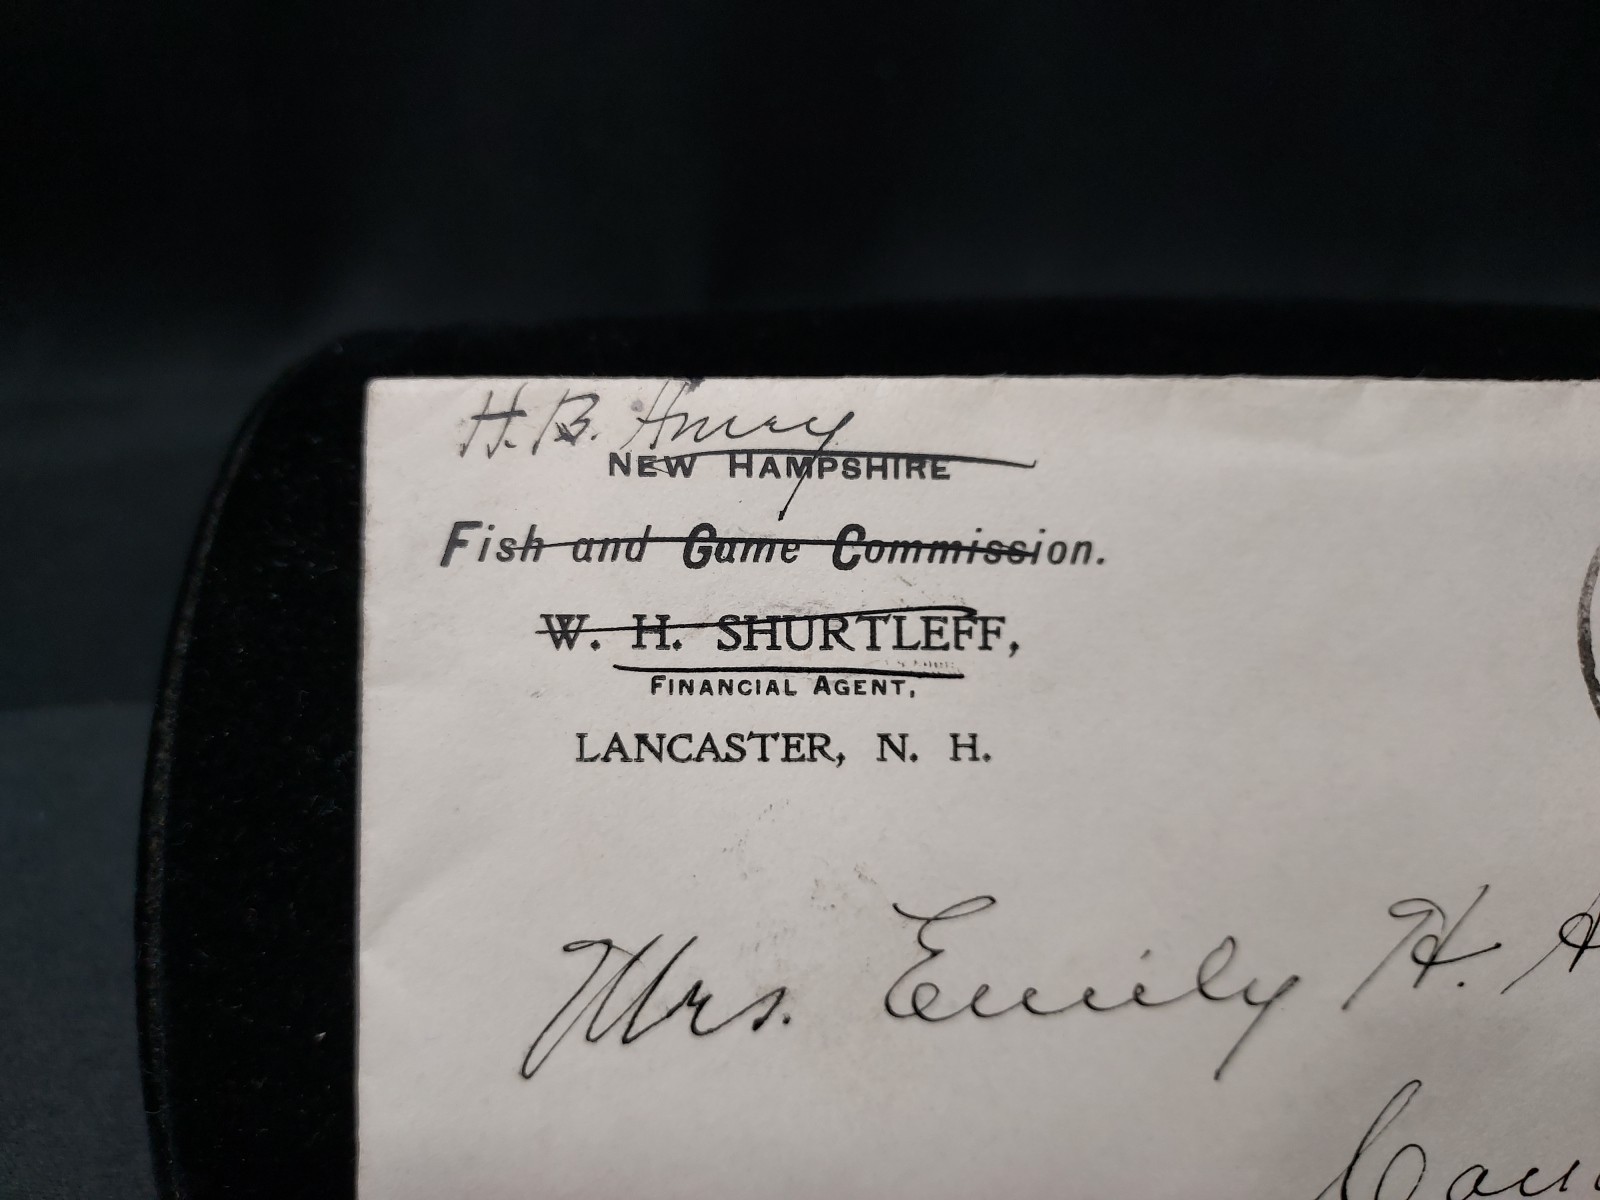 H. B. Amey
NEW HAMPSHIRE
Fish and Game Commission.
W. H. SHURTLEFF,
FINANCIAL AGENT,
LANCASTER, N. H.
Mrs. Emily H.